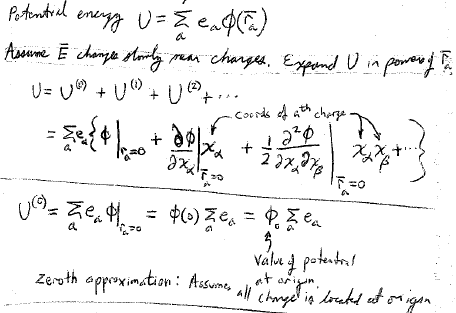 Potential energy U = Σ_a e_a φ(r̄_a)
Assume Ē changes slowly near charges. Expand U in powers of r̄_a
U = U^(0) + U^(1) + U^(2) + ···
coords of a^th charge
= Σ_a e_a { φ|_{r_a=0} + ∂φ/∂x_α|_{r̄_a=0} x_α + 1/2 ∂²φ/∂x_α∂x_β|_{r̄_a=0} x_α x_β + ··· }
U^(0) = Σ_a e_a φ|_{r_a=0} = φ(0) Σ_a e_a = φ_0 Σ_a e_a
value of potential
at origin.
Zeroth approximation: Assumes all charge is located at origin